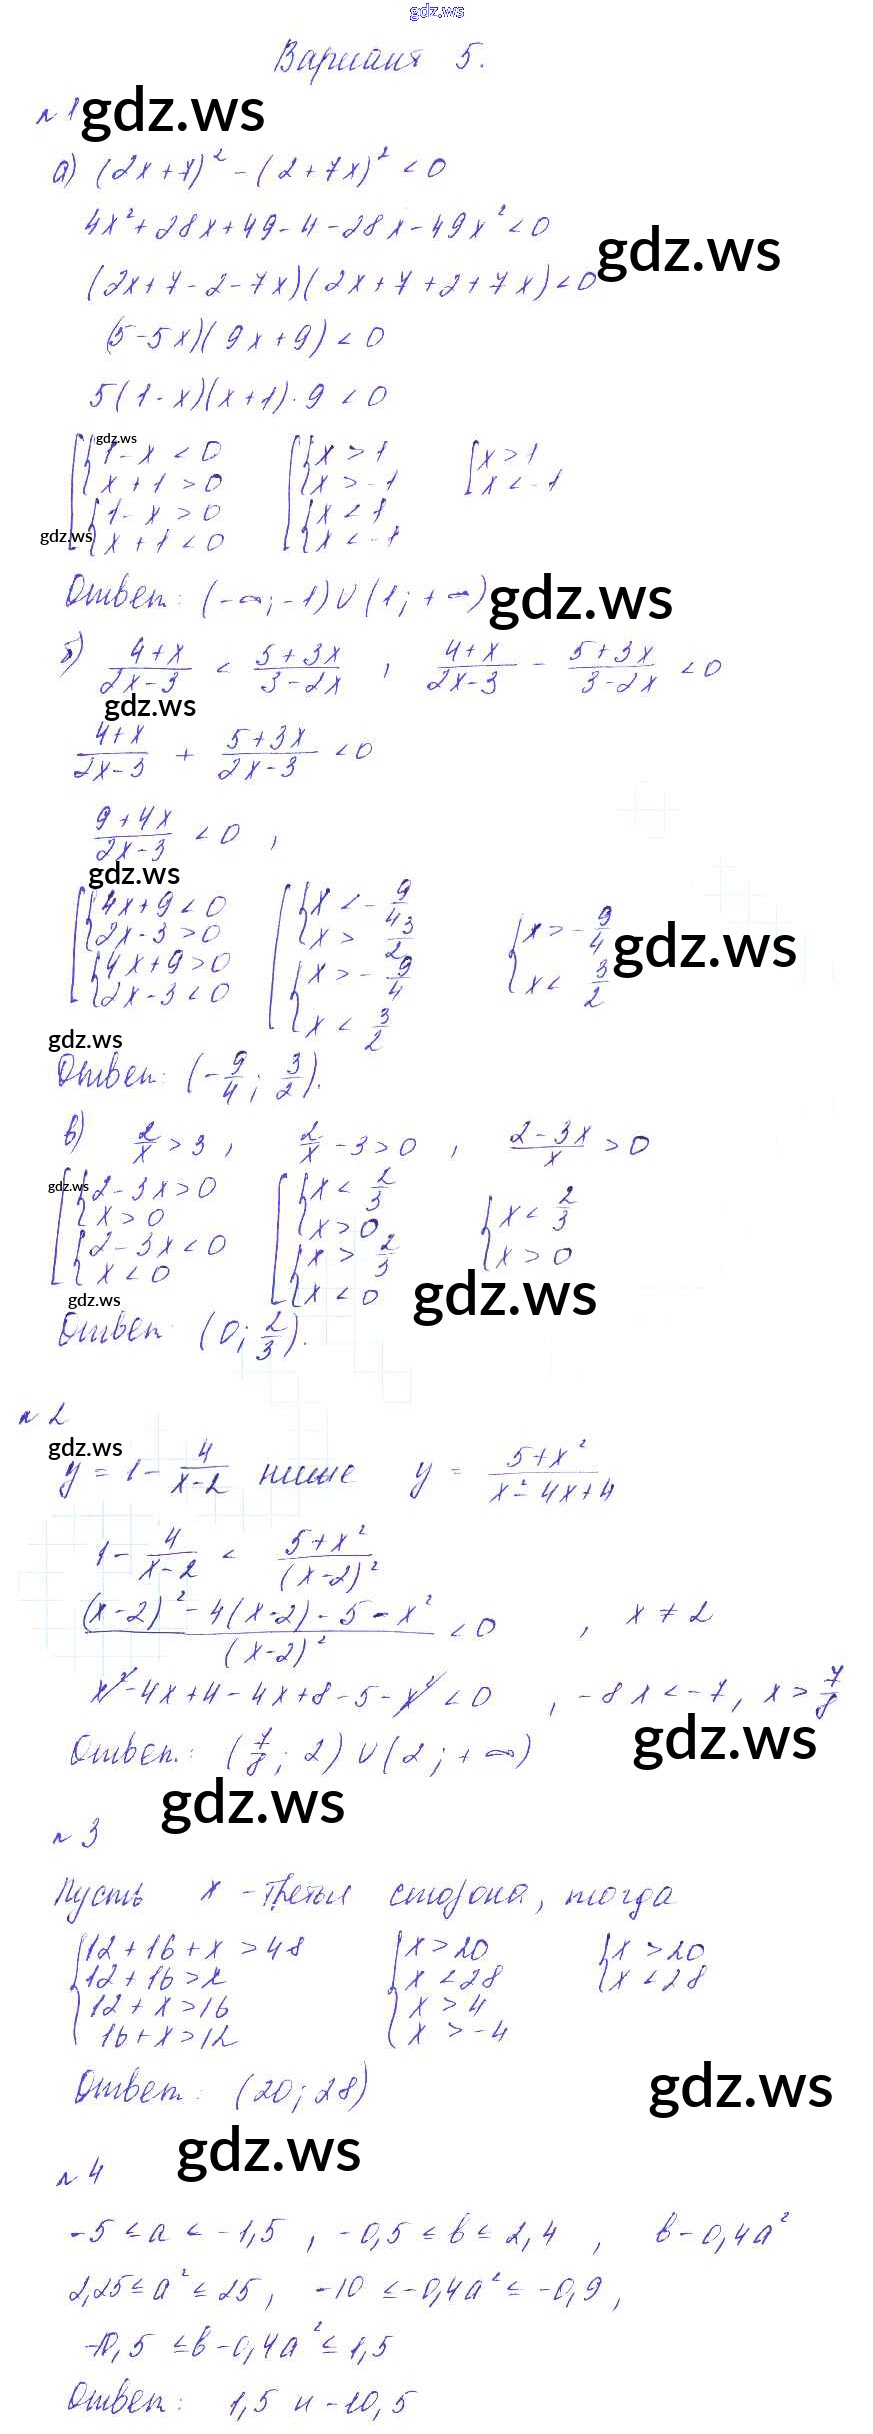 gdz.ws
Вариант 5.
n 1 gdz.ws
а) (2x+7)² - (2+7x)² < 0
4x² + 28x + 49 - 4 - 28x - 49x² < 0
gdz.ws
(2x+7-2-7x)(2x+7+2+7x) < 0
(5-5x)(9x+9) < 0
5(1-x)(x+1)·9 < 0
gdz.ws
1-x < 0 x > 1 x > 1
x+1 > 0 x > -1 x < -1
1-x > 0 x < 1
gdz.ws x+1 < 0 x < -1
Ответ: (-∞; -1) ∪ (1; +∞) gdz.ws
б) (4+x)/(2x-3) < (5+3x)/(3-2x) , (4+x)/(2x-3) - (5+3x)/(3-2x) < 0
gdz.ws
(4+x)/(2x-3) + (5+3x)/(2x-3) < 0
(9+4x)/(2x-3) < 0 ,
gdz.ws
4x+9 < 0 x < -9/4 x > -9/4
2x-3 > 0 x > 3/2 x < 3/2
gdz.ws
4x+9 > 0 x > -9/4
2x-3 < 0 x < 3/2
gdz.ws
Ответ: (-9/4; 3/2).
в) 2/x > 3 , 2/x - 3 > 0 , (2-3x)/x > 0
gdz.ws
2-3x > 0 x < 2/3 x < 2/3
x > 0 x > 0 x > 0
2-3x < 0 x > 2/3
x < 0 x < 0 gdz.ws
gdz.ws
Ответ: (0; 2/3).
n 2
gdz.ws
y = 1 - 4/(x-2) ниже y = (5+x²)/(x²-4x+4)
1 - 4/(x-2) < (5+x²)/(x-2)²
((x-2)² - 4(x-2) - 5 - x²)/(x-2)² < 0 , x ≠ 2
x² - 4x + 4 - 4x + 8 - 5 - x² < 0 , -8x < -7, x > 7/8
gdz.ws
Ответ.: (7/8; 2) ∪ (2; +∞)
gdz.ws
n 3
Пусть x - третья сторона, тогда
12+16+x > 48 x > 20 x > 20
12+16 > x x < 28 x < 28
12+x > 16 x > 4
16+x > 12 x > -4
Ответ: (20; 28) gdz.ws
gdz.ws
n 4
-5 ≤ a ≤ -1,5 , -0,5 ≤ b ≤ 2,4 , b - 0,4a²
2,25 ≤ a² ≤ 25, -10 ≤ -0,4a² ≤ -0,9 ,
-10,5 ≤ b - 0,4a² ≤ 1,5
Ответ: 1,5 и -10,5